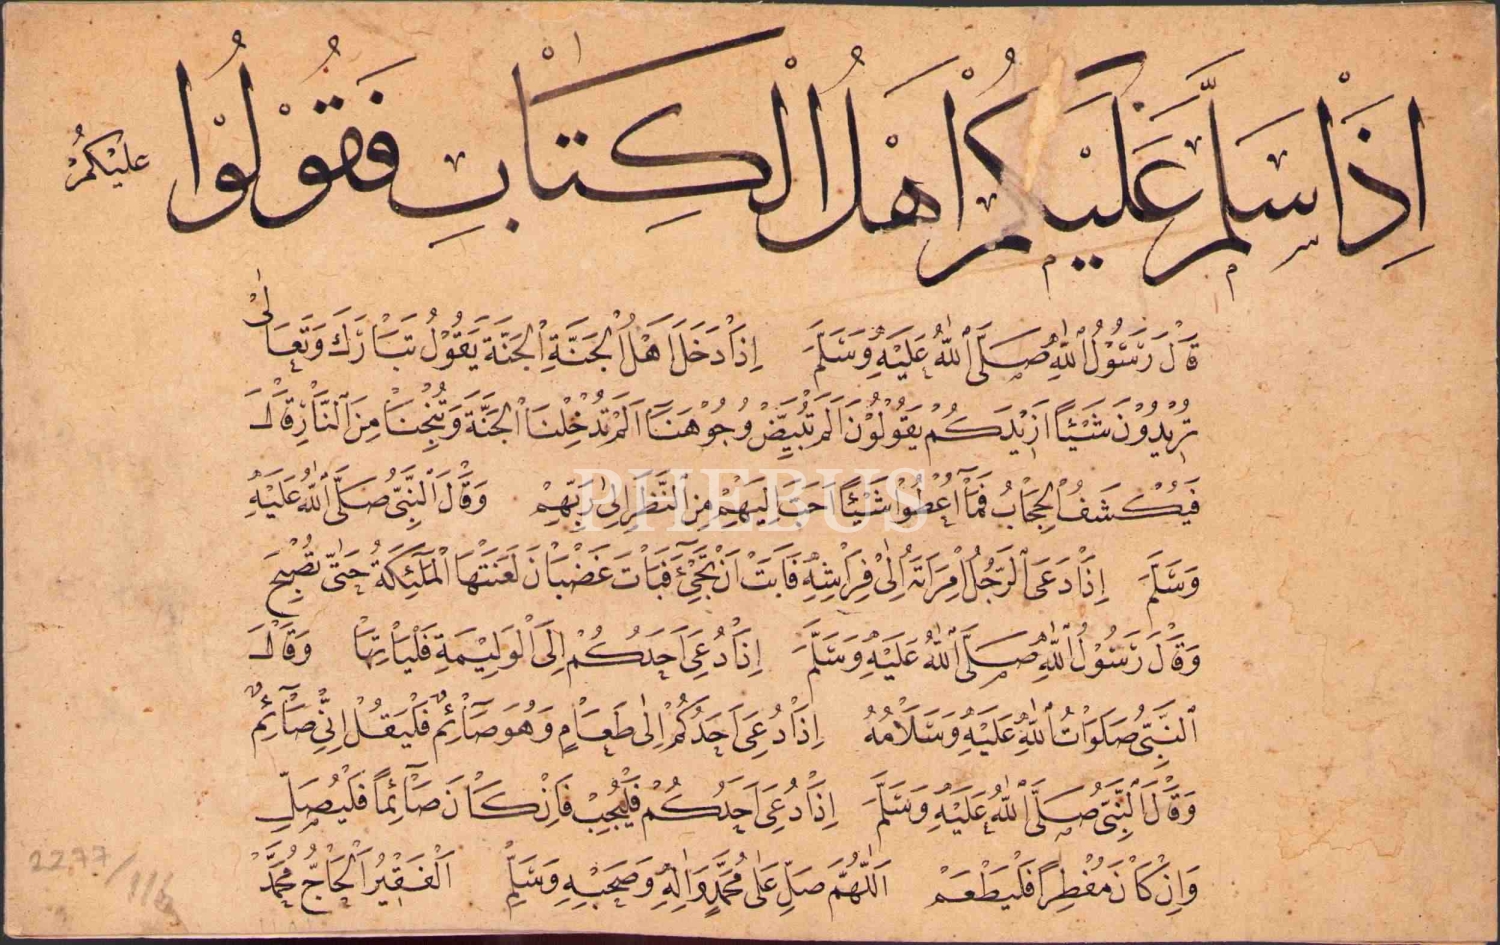 اِذَا سَلَّمَ عَلَيْكُمْ اَهْلُ الْكِتَابِ فَقُوْلُوْا عَلَيْكُمْ
قَالَ رَسُوْلُ اللّٰهِ صَلَّى اللّٰهُ عَلَيْهِ وَسَلَّمَ اِذَا دَخَلَ اَهْلُ الْجَنَّةِ الْجَنَّةَ يَقُوْلُ تَبَارَكَ وَتَعَالٰى
تُرِيْدُوْنَ شَيْئًا اَزِيْدَكُمْ يَقُوْلُوْنَ اَلَمْ تُبَيِّضْ وُجُوْهَنَا اَلَمْ تُدْخِلْنَا الْجَنَّةَ وَتُنْجِنَا مِنَ النَّارِ قَالَ
فَيُكْشَفُ الْحِجَابُ فَمَا اُعْطُوْا شَيْئًا اَحَبَّ اِلَيْهِمْ مِنَ النَّظَرِ اِلٰى رَبِّهِمْ وَقَالَ النَّبِيُّ صَلَّى اللّٰهُ عَلَيْهِ
PHEBUS
وَسَلَّمَ اِذَا دَعَى الرَّجُلُ امْرَاَتَهُ اِلٰى فِرَاشِهِ فَاَبَتْ اَنْ تَجِيْئَ فَبَاتَ غَضْبَانَ لَعَنَتْهَا الْمَلٰئِكَةُ حَتّٰى تُصْبِحَ
وَقَالَ رَسُوْلُ اللّٰهِ صَلَّى اللّٰهُ عَلَيْهِ وَسَلَّمَ اِذَا دُعِىَ اَحَدُكُمْ اِلَى الْوَلِيْمَةِ فَلْيَاْتِهَا وَقَالَ
النَّبِيُّ صَلَوَاتُ اللّٰهِ عَلَيْهِ وَسَلَامُهُ اِذَا دُعِىَ اَحَدُكُمْ اِلٰى طَعَامٍ وَهُوَ صَآئِمٌ فَلْيَقُلْ اِنِّيْ صَآئِمٌ
وَقَالَ النَّبِيُّ صَلَّى اللّٰهُ عَلَيْهِ وَسَلَّمَ اِذَا دُعِىَ اَحَدُكُمْ فَلْيُجِبْ فَاِنْ كَانَ صَآئِمًا فَلْيُصَلِّ
وَاِنْ كَانَ مُفْطِرًا فَلْيَطْعَمْ اَللّٰهُمَّ صَلِّ عَلٰى مُحَمَّدٍ وَاٰلِهِ وَصَحْبِهِ وَسَلِّمْ اَلْفَقِيْرُ الْحَاجُّ مُحَمَّدْ
2277/116